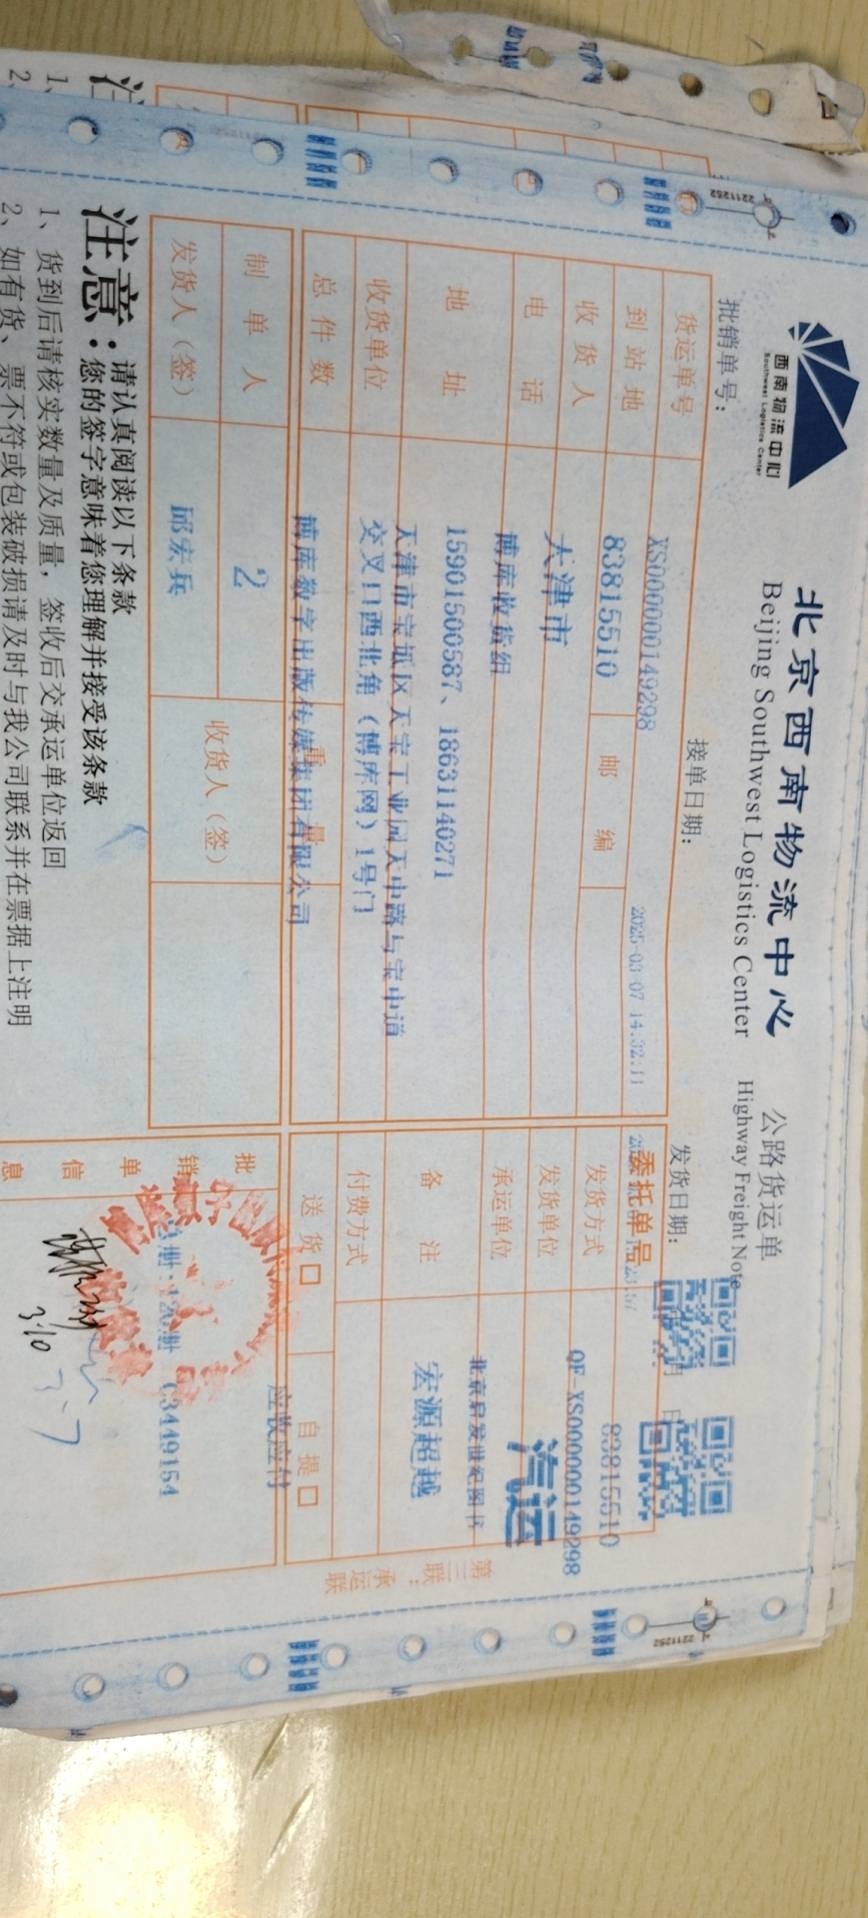 西南物流中心
Southwest Logistics Center
北京西南物流中心
Beijing Southwest Logistics Center
公路货运单
Highway Freight Note
批销单号：
XS000000149298
接单日期：
2025-03-07 14:32:11
发货日期：
月 日
货运单号
83815510
邮 编
委托单号
83815510
到站地
天津市
发货方式
QF-XS000000149298
汽运
收货人
博库收货组
发货单位
北京启发世纪图书
电 话
15901500587、18631140271
承运单位
宏源超越
地 址
天津市宝坻区天宝工业园天中路与宝中道
交叉口西北角（博库网）1号门
备 注
收货单位
博库数字出版传媒集团有限公司
付费方式
应收应付
总件数
2
重 量
送货□
自提□
制单人
邱宏兵
发货人（签）
收货人（签）
批销单信息
总册：120册
C3449154
3.10
3.7
第三联：承运联
注意：
请认真阅读以下条款
您的签字意味着您理解并接受该条款
1、货到后请核实数量及质量，签收后交承运单位返回
2、如有货、票不符或包装破损请及时与我公司联系并在票据上注明